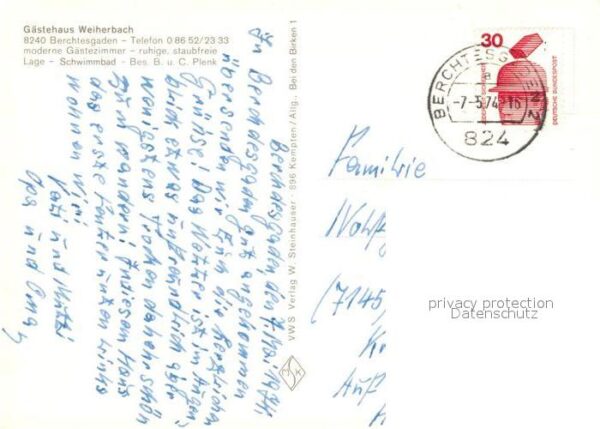 Gästehaus Weiherbach
8240 Berchtesgaden – Telefon 0 86 52/23 33
moderne Gästezimmer - ruhige, staubfreie
Lage - Schwimmbad - Bes. B. u. C. Plenk
Berchtesgaden, den 7. Mai 1974
In Berchtesgaden gut angekommen
übersenden wir Euch die herzlichen
Grüße! Das Wetter ist im Augen-
blick etwas unfreundlich aber
wenigstens trocken daher schön
zum wandern! In diesem Haus
das erste Fenster unten links
wohnen wir!
Vati und Mutti
Opa und Oma
VWS Verlag W. Steinhauser · 896 Kempten/Allg. Bei den Birken 1
30
DEUTSCHE BUNDESPOST
BERCHTESGADEN
-7-5.74-16
824
Familie
(7145)
privacy protection
Datenschutz